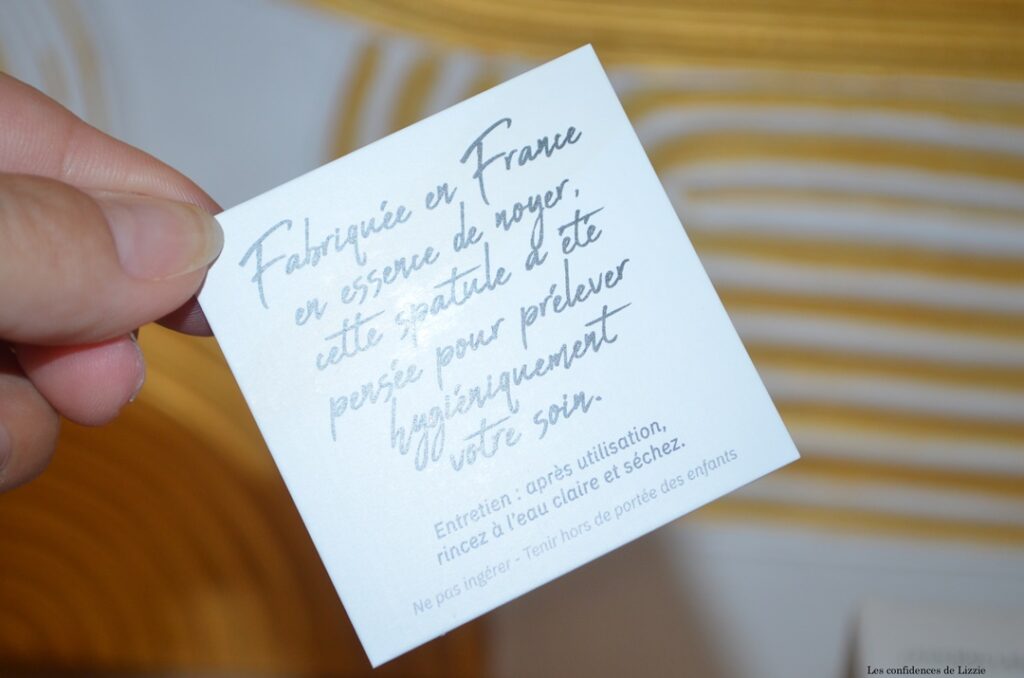 Fabriquée en France
en essence de noyer,
cette spatule a été
pensée pour prélever
hygiéniquement
votre soin.
Entretien : après utilisation,
rincez à l'eau claire et séchez.
Ne pas ingérer - Tenir hors de portée des enfants
Les confidences de Lizzie